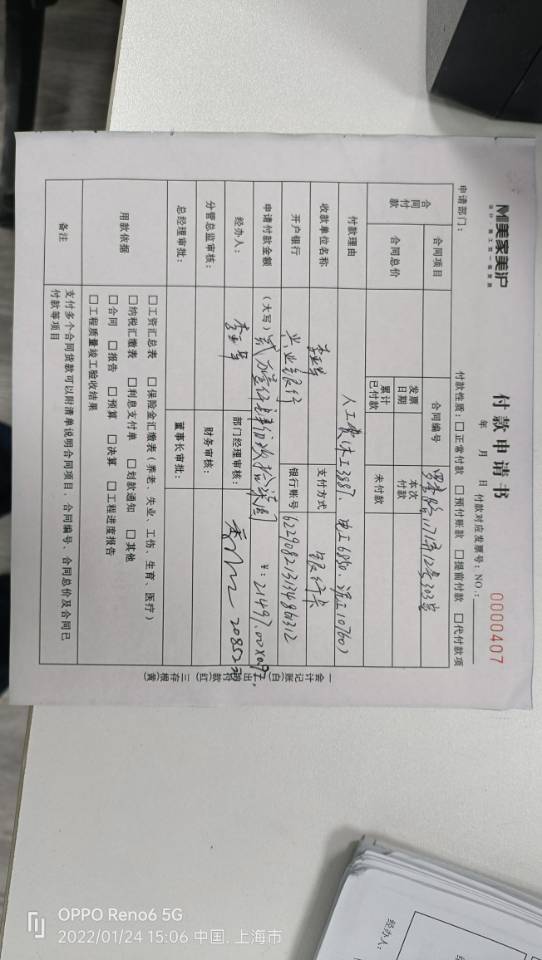 M美家美沪
付款申请书
0000407
年 月 日 付款对应发票号：NO.:
申请部门：
付款性质：□正常付款 □预付账款 □提前付款 □代付款项
合同付款
合同项目
合同编号
171弄12号303室
合同总价
发票日期
本次付款
累计已付款
未付款
付款理由
人工费(木工3887、电工6850、泥工10760)
收款单位名称
李亚军
支付方式
银行卡
开户银行
兴业银行
银行账号
62290821313486312
申请付款金额
(大写)贰万壹仟肆佰玖拾柒圆
￥：21497.00×0.97,
经办人：
李亚军
部门经理审核：
20852元
分管总监审核：
财务审核：
总经理审批：
董事长审批：
用款依据
□工资汇总表 □保险金汇缴表(养老、失业、工伤、生育、医疗)
□纳税汇缴表 □利息支付单 □划款通知 □其他
□合同 □报告 □预算 □决算 □工程进度报告
□工程质量竣工验收结果
备注
支付多个合同货款可以附清单说明合同项目、合同编号、合同总价及合同已
付款等项目
一会计记账(白) 二出纳付款(红) 三存根(黄)
经办人：
OPPO Reno6 5G
2022/01/24 15:06 中国. 上海市